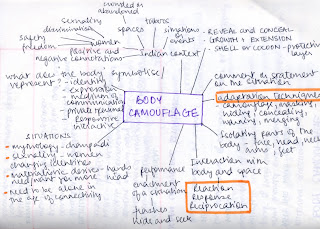 crowded or abandoned
sexuality
discrimination
safety
freedom
women
positive and
negative connotations
spaces
tattoos
situations or
events
Indian context
- REVEAL and CONCEAL
- GROWTH & EXTENSION
- SHELL or COCOON - protective
layer
what does the body symbolise
represent? - identity
- expression
- medium of
communication
- private & personal
- Responsive
- interactive
BODY
CAMOUFLAGE
comment or statement
on the situation
adaptation techniques
camouflage, masking,
hiding, concealing,
warning, merging
Isolating parts of the
body - face, head, neck
arms, feet
SITUATIONS:
- mythology - draupadi
- sexuality - women
changing identities
- materialistic desires - hands
need/want for more head
- need to be alone in
the age of connectivity
performance
enactment of a situation
hide and seek
Interaction with
body and space
Reaction
Response
Reciprocation